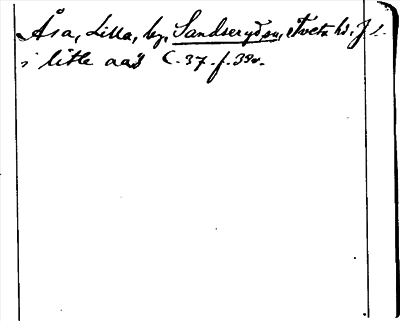 Åsa, Lilla, by, Sandseryd sn, Tveta hd. J l.
i litle aas C. 37. f. 39v.